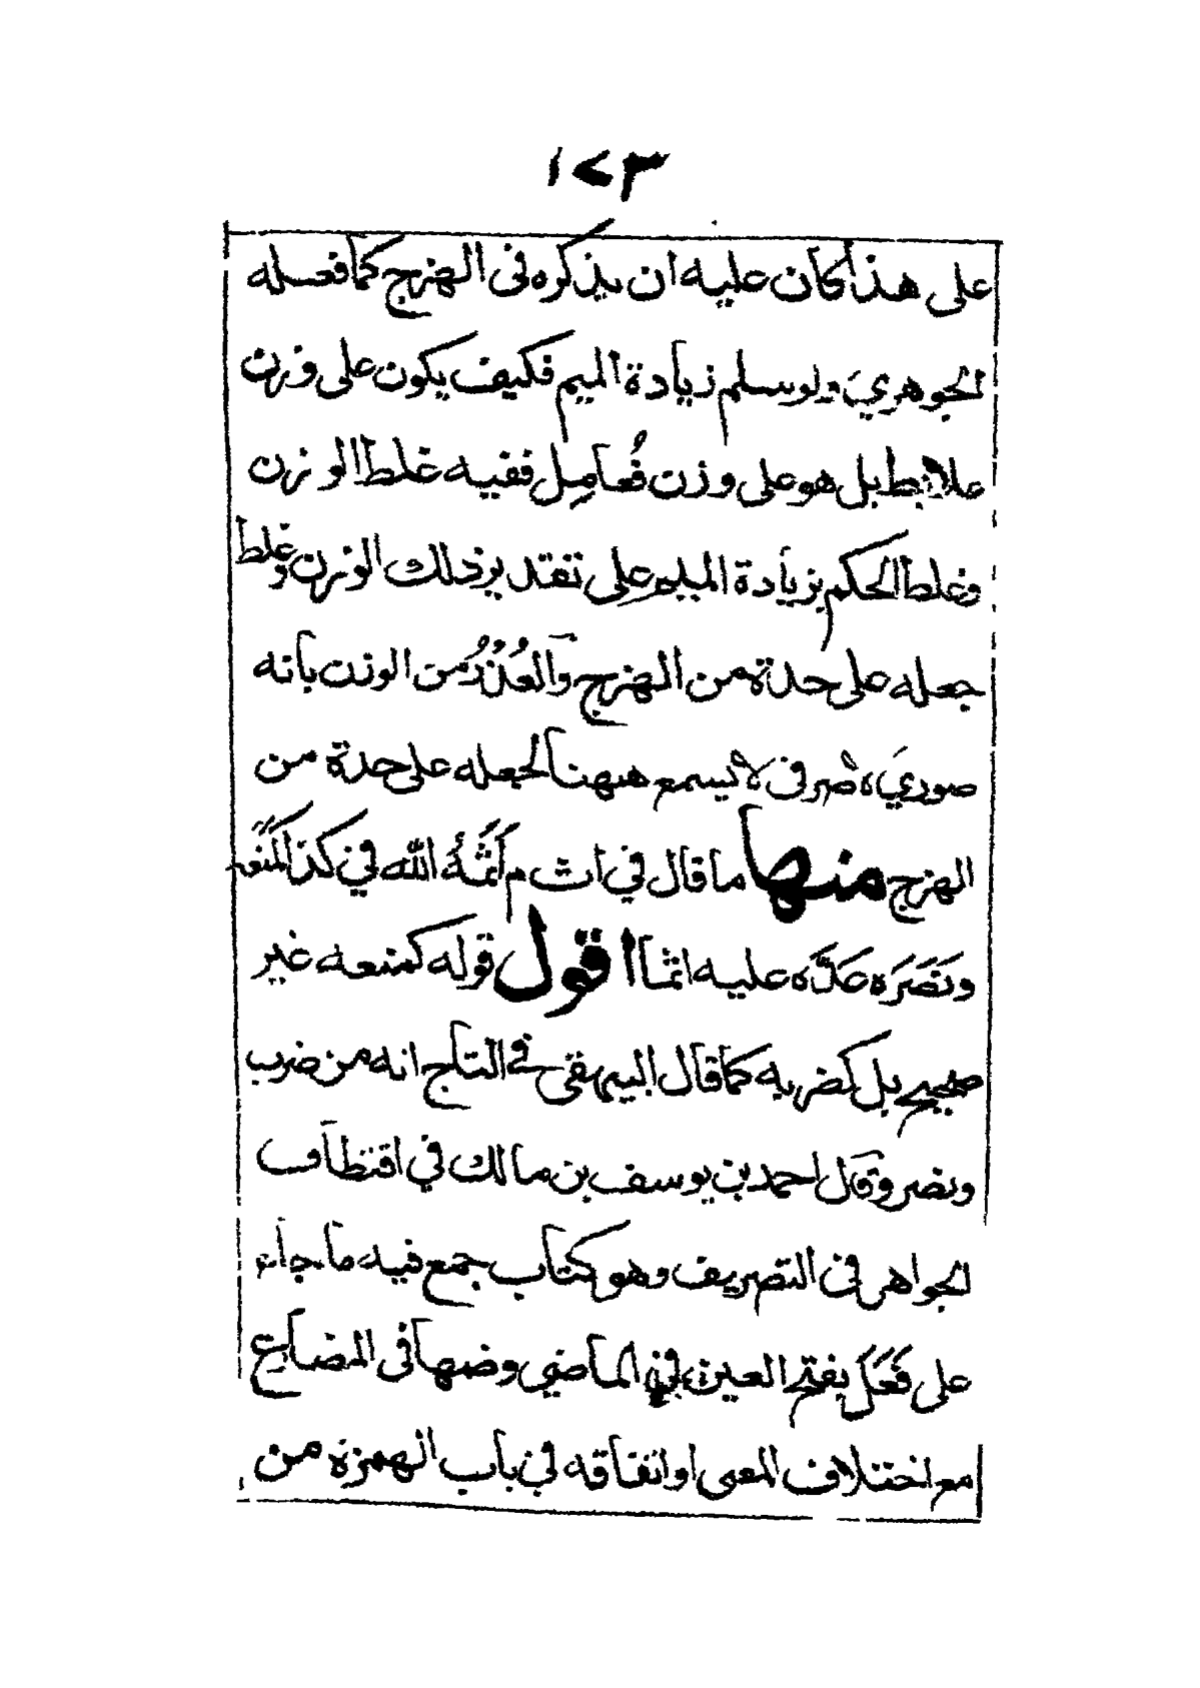 ١٧٣
على هذا كان عليه ان يذكره فى الهزج كما فعله
الجوهري ولو سلم زيادة الميم فكيف يكون على وزن
علابط بل هو على وزن فُعامِل ففيه غلط الوزن
وغلط الحكم بزيادة الميم على تقدير ذلك الوزن وغلط
جعله على حدة من الهزج والعُذْرُ من الوزن بانه
صوري لا صرفى لا يسمع ههنا لجعله على حدة من
الهزج منها ما قال في اث م أَثَمَهُ الله في كذا كمَنَعه
ونَصَرَه عَدَّه عليه اثما اقول قوله كمنعه غير
صحيح بل كضربه كما قال البيهقى في التاج انه من ضرب
ونصر وقال احمد بن يوسف بن مالك في اقتطاف
الجواهر فى التصريف وهو كتاب جمع فيه ما جاء
على فَعَلَ بفتح العين في الماضي وضمها فى المضارع
مع اختلاف المعنى او اتفاقه في باب الهمزة من